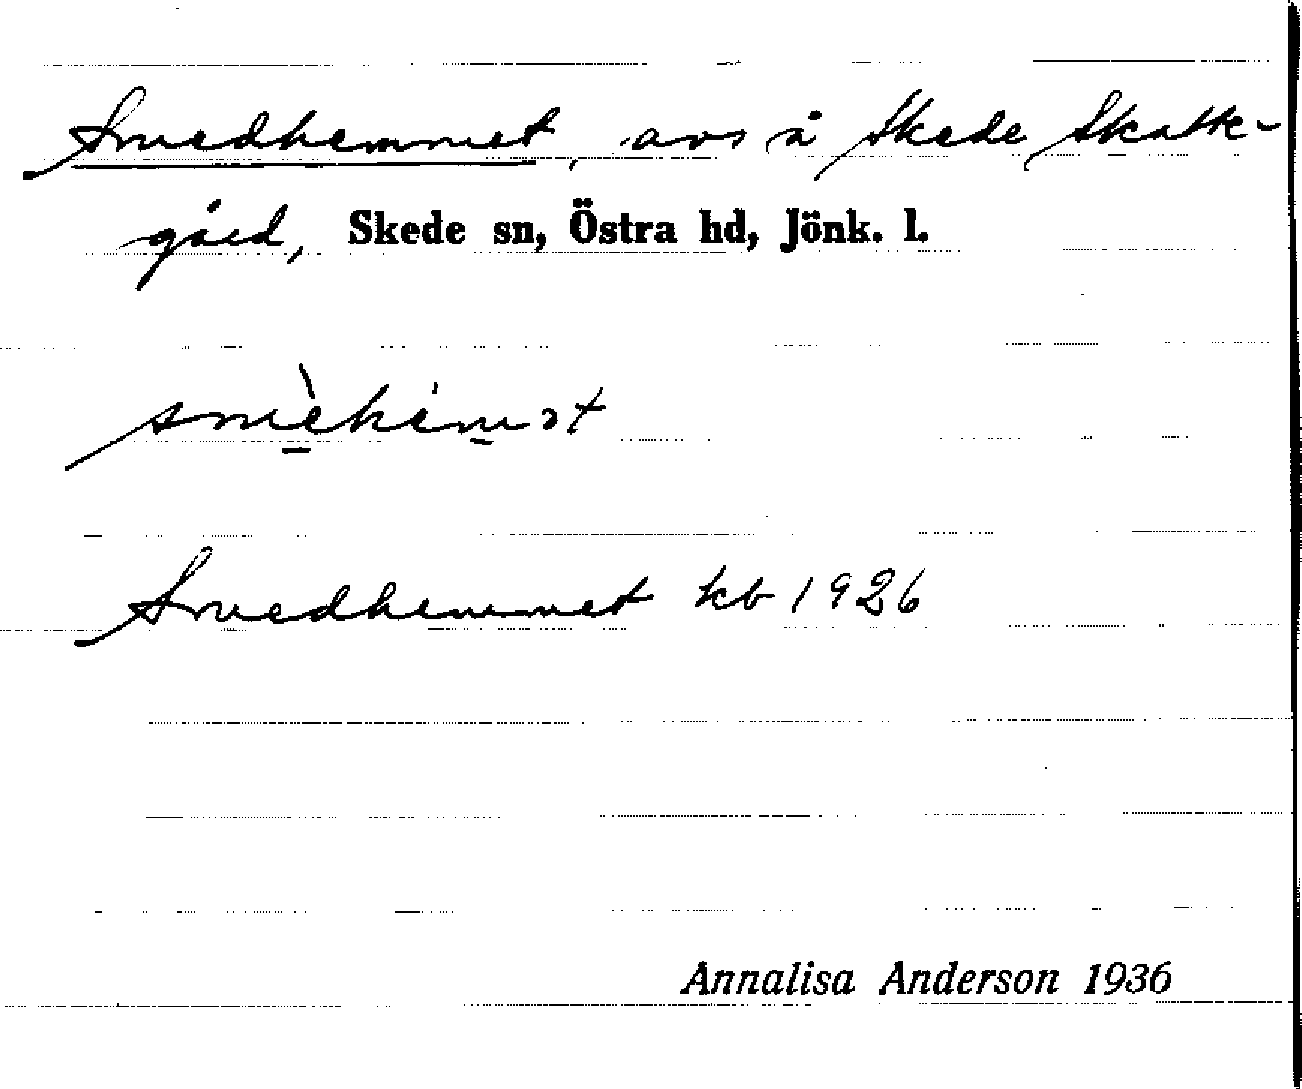 Smedhemmet, avs å Skede Skatte-
gård, Skede sn, Östra hd, Jönk. l.
smè̱hém̱ət
Smedhemmet kb 1926
Annalisa Anderson 1936